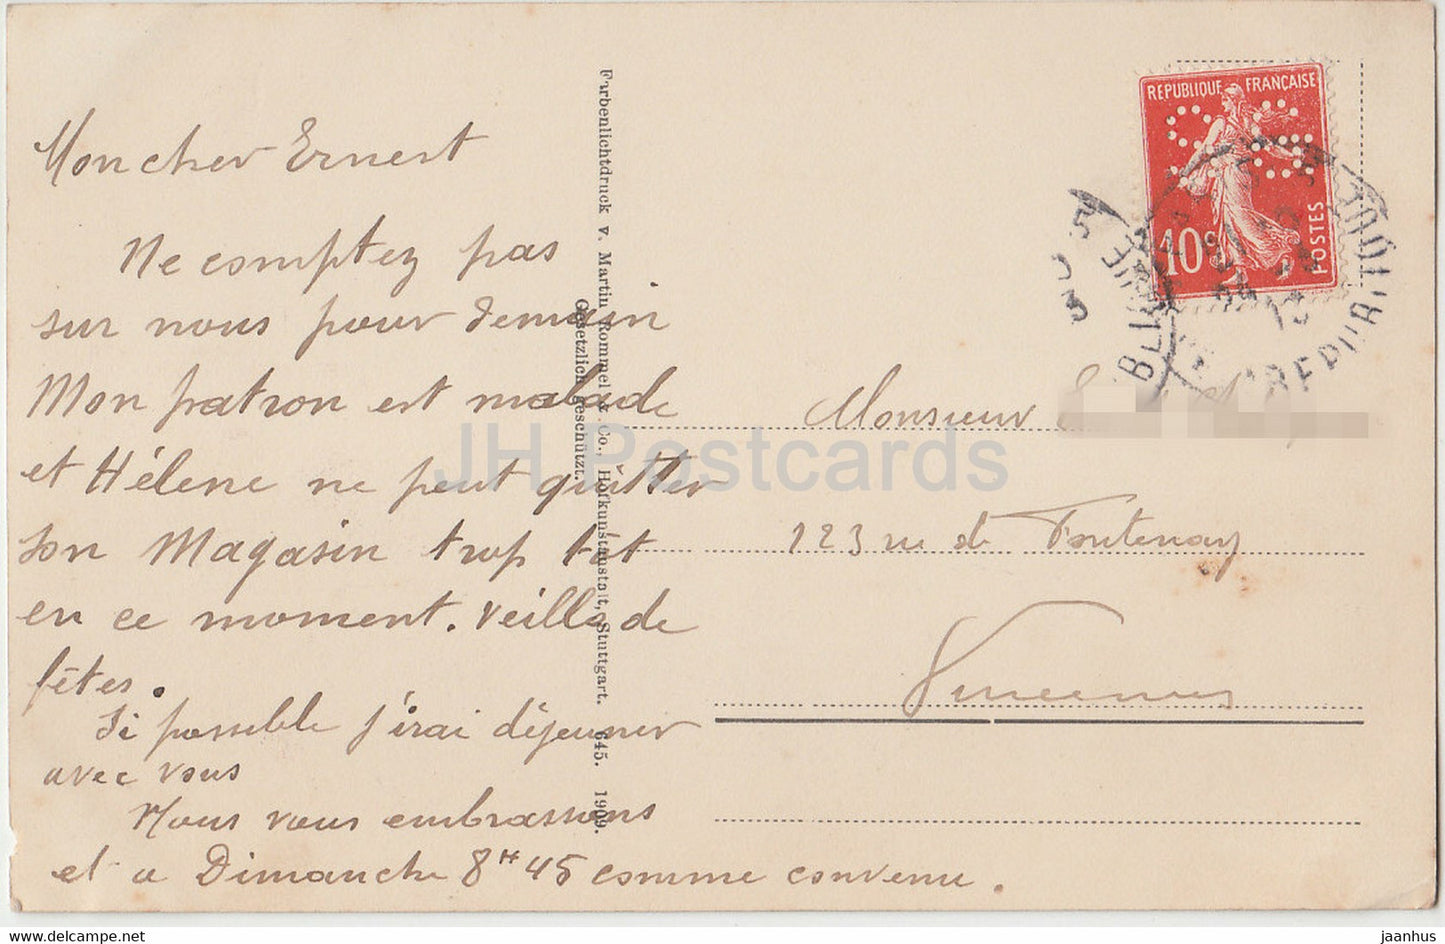 Mon cher Ernest
Ne comptez pas
sur nous pour demain
Mon patron est malade
et Hélène ne peut quitter
son Magasin trop tôt
en ce moment. Veille de
fêtes.
Si possible j'irai déjeuner
avec vous
Nous vous embrassons
et a Dimanche 8H 45 comme convenu.
Farbenlichtdruck v. Martin Rommel & Co., Hofkunstanstalt, Stuttgart. 645. 1909.
Gesetzlich geschützt.
REPUBLIQUE FRANÇAISE
10c
POSTES
Monsieur
123 rue de Fontenay
Vincennes
JH Postcards
www.hippostcard.com/store/jaanhus
jaanhus